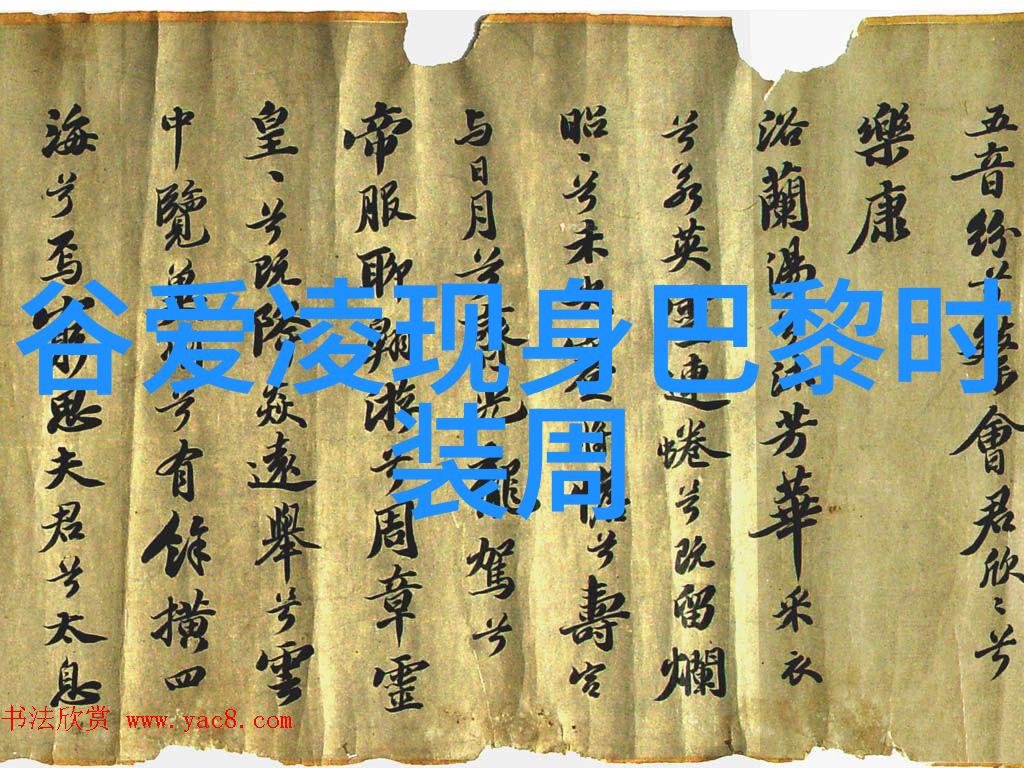 谷爱凌现身巴黎时
装周
五音纷兮繁會君欣〻兮
樂康
浴蘭湯兮沐芳華采衣
兮若英連蜷兮既留爛
昭〻兮未央將憺兮壽宮
与日月兮齊光龍駕兮
帝服聊翱游兮周章霊
皇〻兮既降猋遠舉兮雲
中覽兮有餘横四
海兮焉窮思夫君兮太息
书法欣赏 www.yac8.com